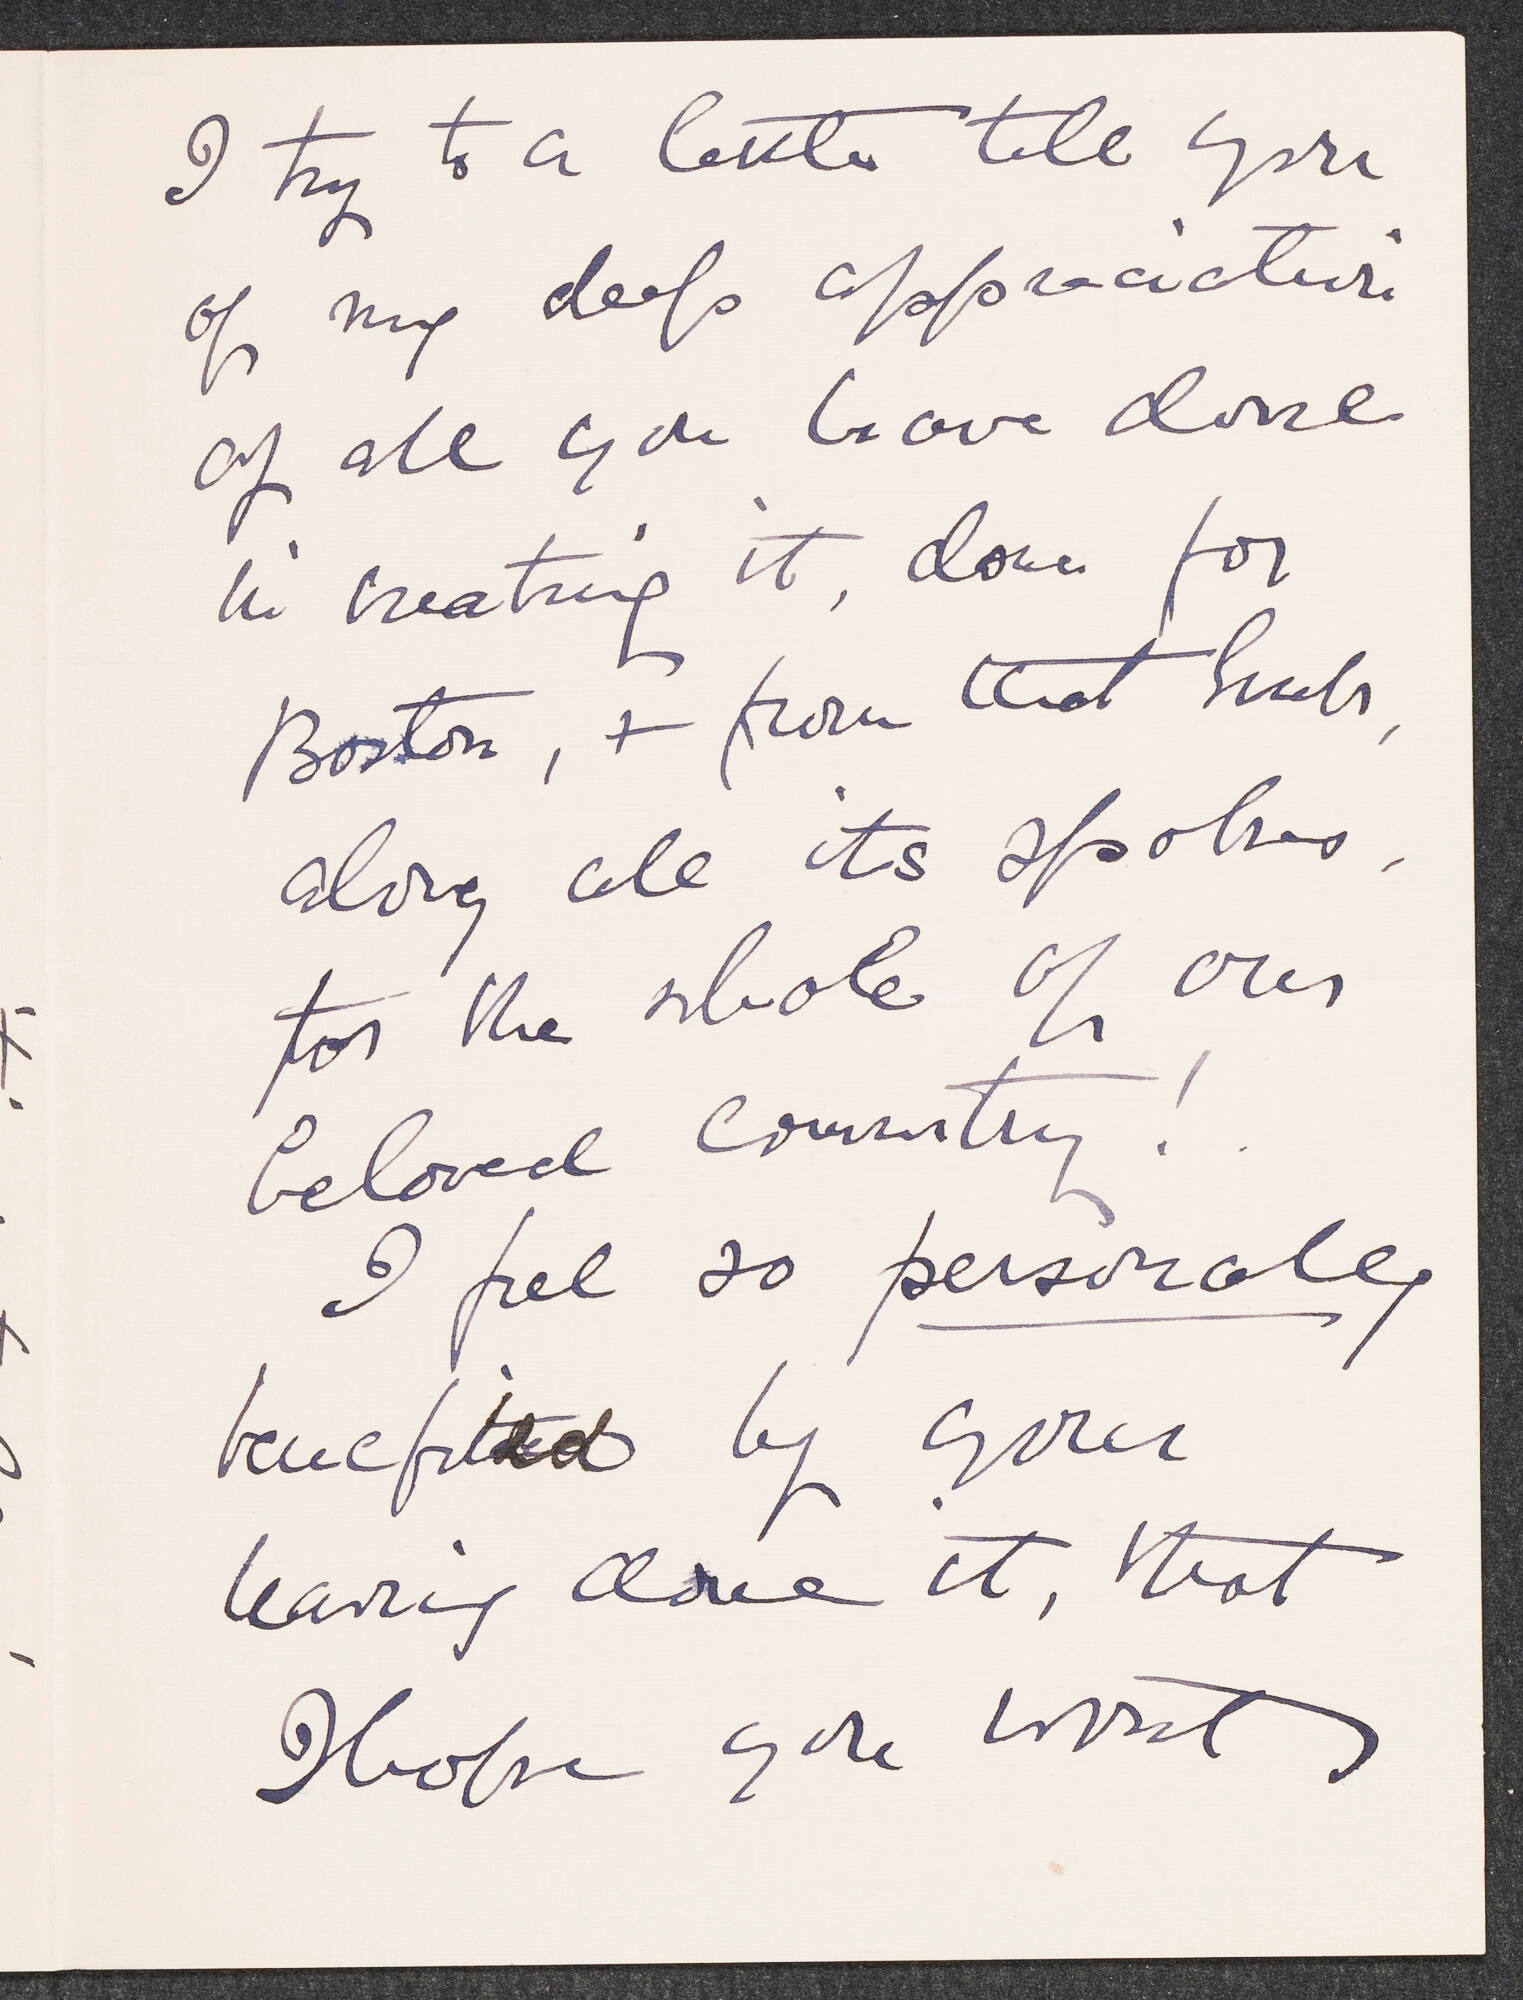 I try to a little tell you
of my deep appreciation
of all you have done
in creating it, done for
Boston, + from that hub,
along all its spokes,
for the whole of our
beloved country!
I feel so personally
benefitted by your
having done it, that
I hope you wont